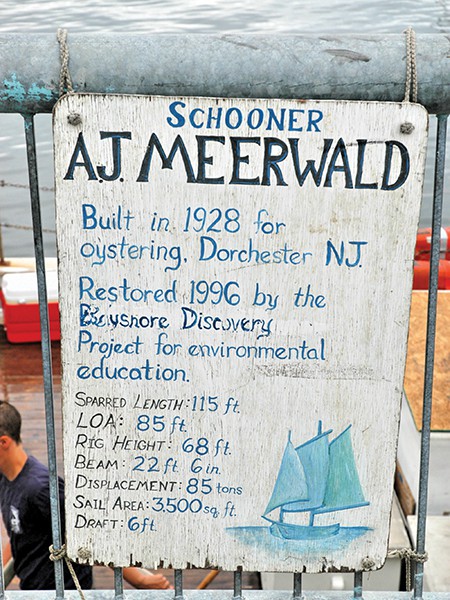 SCHOONER
A.J. MEERWALD
Built in 1928 for
oystering, Dorchester NJ.
Restored 1996 by the
Bayshore Discovery
Project for environmental
education.
SPARRED LENGTH: 115 ft.
LOA: 85 ft.
RIG HEIGHT: 68 ft.
BEAM: 22 ft 6 in.
DISPLACEMENT: 85 tons
SAIL AREA: 3,500 sq. ft.
DRAFT: 6 ft.